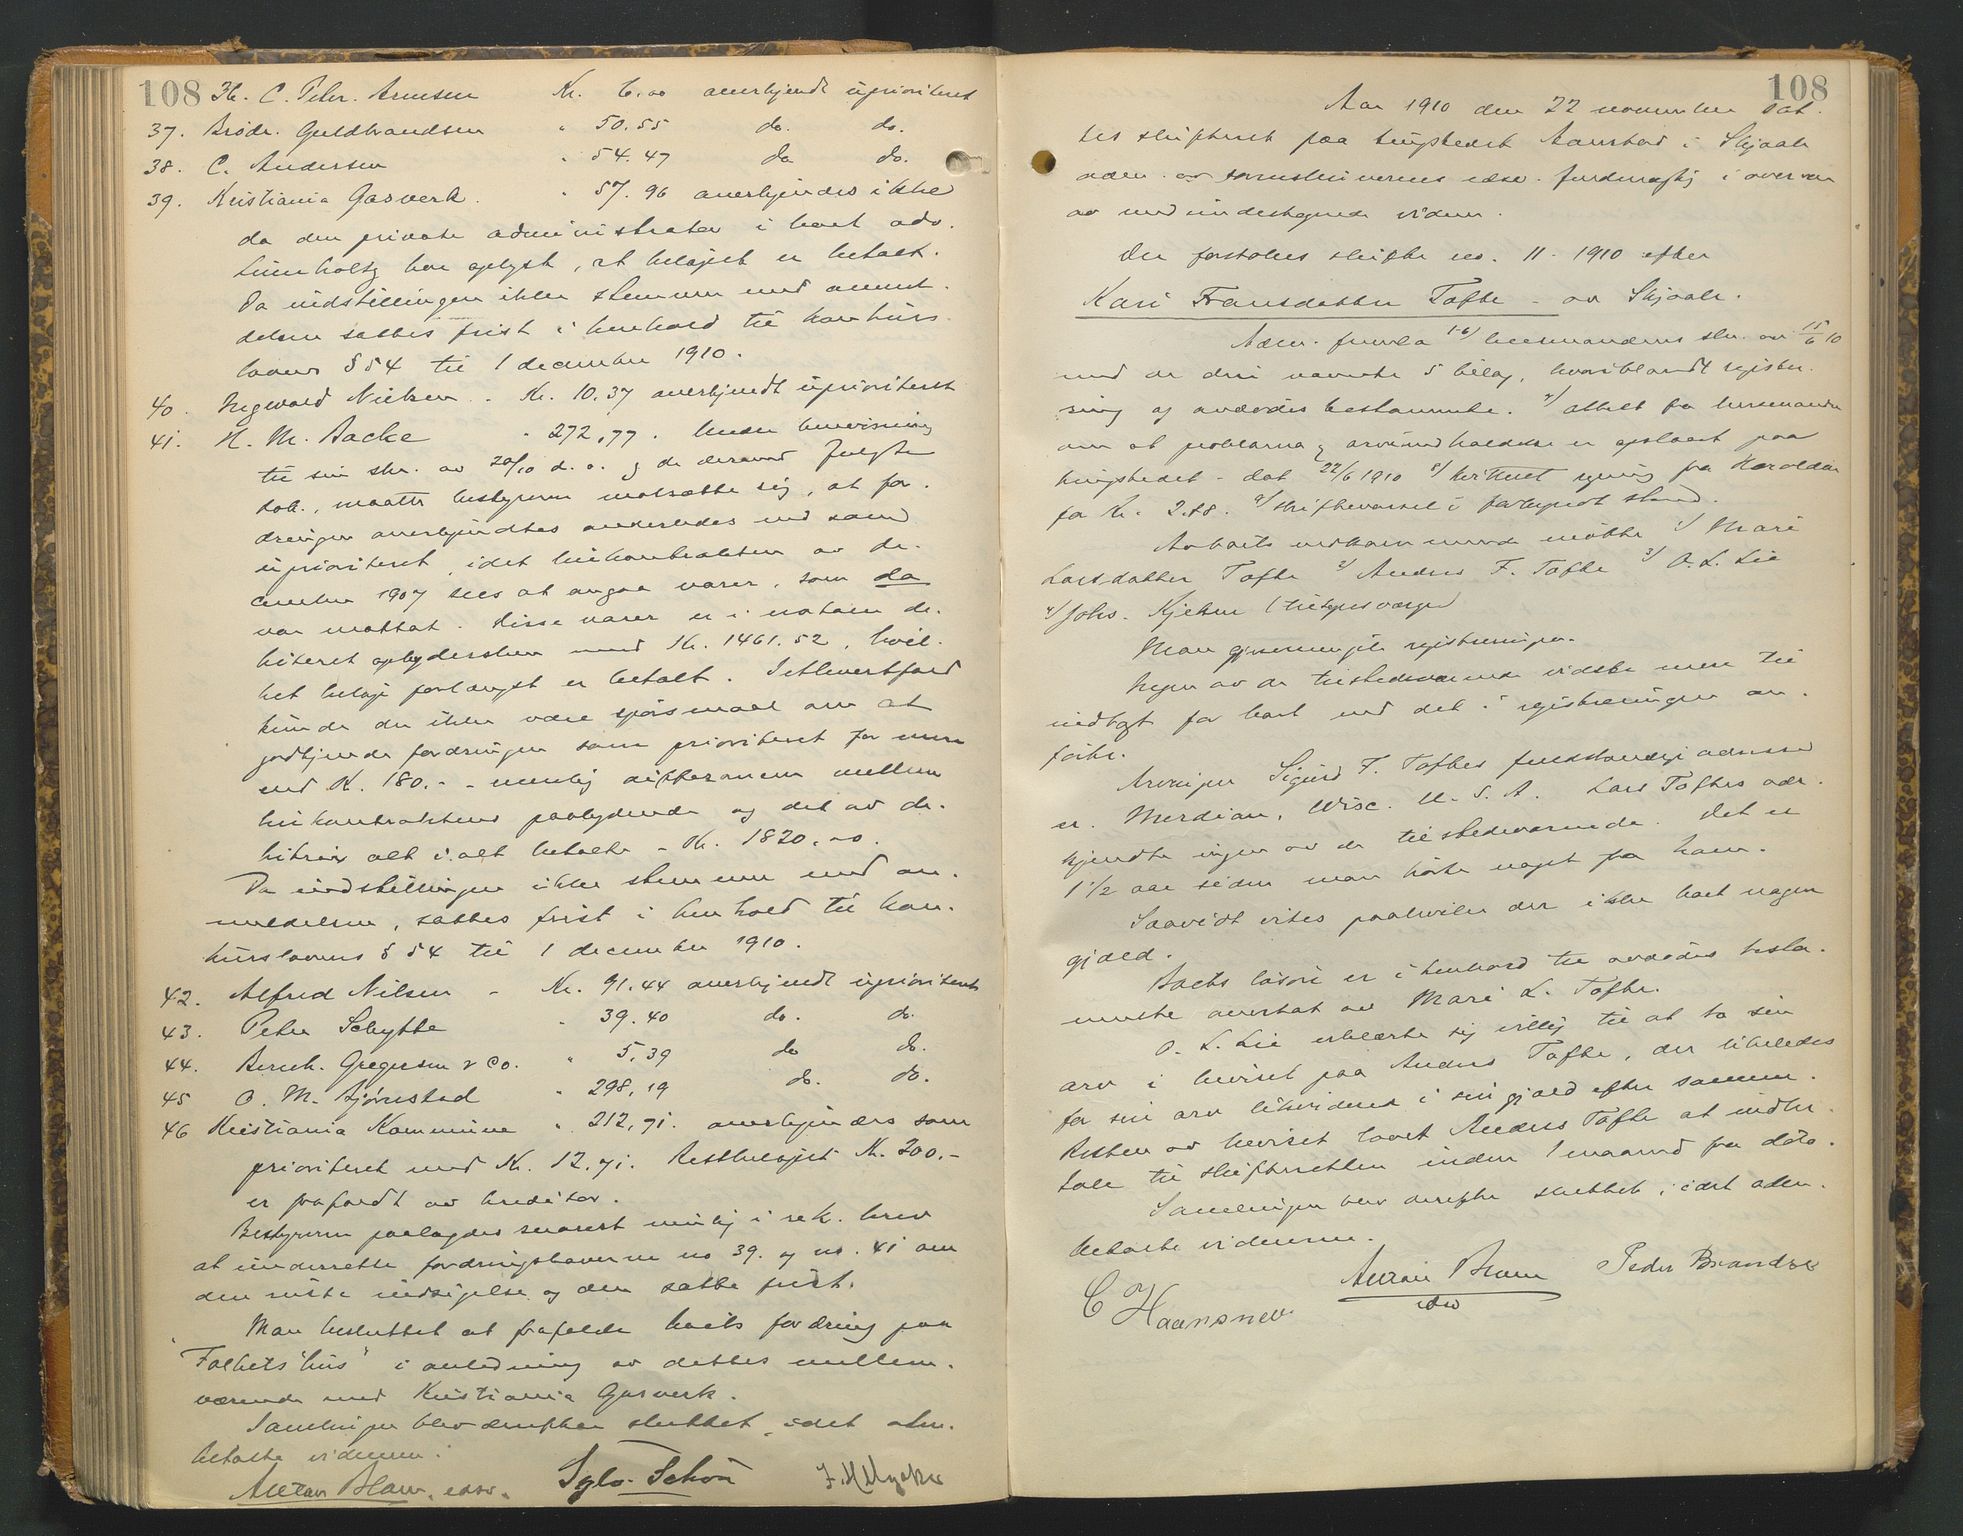 108
36. C. Peter. Arnesen Kr. 6.00 anerkjendt uprioritert
37. Brødr. Guldbrandsen " 50.55 do. do.
38. C. Andersen " 54.47 do do.
39. Kristiania Gasverk. " 57.96 anerkjendes ikke
da den private administrator i boet adv.
har oplyst, at beløpet er betalt.
Da indstillingen ikke stemmer med anmel-
delsen sattes frist i henhold til konkurs
lovens § 54 til 1 december 1910.
40. Ingvald Nielsen - Kr. 10.37 anerkjendt uprioritert
41. H. M. Backe " 272,77. Under henvisning
til sin skr. av 20/10 d. a. og de dermed fulgte
dok., maatte bestyreren motsætte sig, at for-
dringen anerkjendtes anderledes end som
uprioritert, idet leiekontrakten av de-
cember 1907 sees at angaa varer, som da
var mottat. Disse varer er i notaen de-
bitert opbyderskem med Kr. 1461.52, hvil-
ket beløp forlængst er betalt. I ethvertfald
kunde der ikke være spørsmaal om at
godkjende fordringen som prioritert for mere
end Kr. 180.- - nemlig differansen mellem
leiekontraktens paalydende og det av de-
bitrix alt i alt betalte - Kr. 1820.00.
Da indstillingen ikke stemmer med an-
meldelsen, sattes frist i henhold til kon-
kurslovens § 54 til 1 december 1910.
42. Alfred Nilsen - Kr. 91.44 anerkjendt uprioritert
43. Peter Schytte " 39.40 do. do.
44. Bernh. Gregersen & Co. " 5,39 do do.
45 O. M. Bjørnstad " 298,19 do. do.
46 Kristiania Kommune " 212,71. anerkjendes som
prioritert med Kr. 12.71. Restbeløpet Kr. 200.-
er frafaldt av kreditor.
Bestyreren paalagdes snarest mulig i rek. brev
at underrette fordringshaverne no 39. og no. 41 om
den reiste indsigelse og den satte frist.
Man besluttet at frafalde boets fordring paa
"Folkets hus" i anledning av dettes mellem-
værende med Kristiania Gasverk.
Samlingen blev derefter sluttet, idet adm.
betalte vidnerne.
Anton Blom, edsv.
108
Aar 1910 den 22 november sat-
tes skifteret paa tingstedet Aanstad i Skjaak
adm. av sorenskriverens edsv. fuldmægtig i overvær
av medundertegnede vidner.
Der foretokes skifte no. 11 - 1910 efter
Kari Fransdatter Tofte - av Skjaak.
Adm. fremla 1-6) lensmandens skr. av 15/6 10
med de deri nævnte 5 bilag, hvoriblandt registre-
ring og avdødes testamente. 7) attest fra lensmanden
om at proklama og arveindkaldelse er opslaaet paa
tingstedet - dat 22/6 1910 8) kvittert regning fra
for Kr. 2.88. 9) skiftevarsel i forkyndt stand.
Av boets vedkommende møtte 1) Mari
Larsdatter Tofte 2) Anders F. Tofte 3) O. L. Lie
4) Johs. Kjelsen (tilsynsværge)
Man gjennemgik registreringen.
Ingen av de tilstedeværende vidste mere til
indtægt for boet end det i registreringen an-
førte.
Arvingen Sigurd F. Toftes fuldstændige adresse
er. Merdian, Wisc. U. S. A. Lars Toftes adr.
kjendte ingen av de tilstedeværende. Det er
1 1/2 aar siden man hørte noget fra ham.
Saavidt vites paahviler der ikke boet nogen
gjæld.
Boets løsøre er i henhold til avdødes testa-
mente overtat av Mari L. Tofte.
O. L. Lie erklærte sig villig til at ta sin
arv i beviset paa Anders Tofte, der likeledes
for sin arv likviderer i sin gjæld efter samme.
Resten av beviset lovet Anders Tofte at indbe-
tale til skifteretten inden 1 maaned fra dato.
Samlingen blev derefter sluttet, idet adm.
betalte vidnerne.
Anton Blom
edsv
Peder Brandsæ